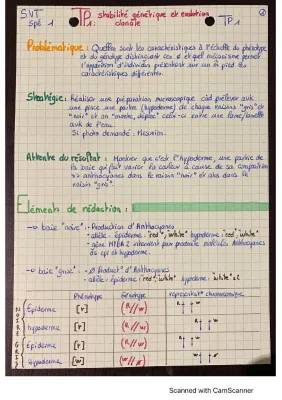 SVT
Spé 1
TP 1 : stabilité génétique et évolution
clonale
TP1
Problématique : Quelles sont les caractéristiques à l'échelle du phénotype
et du génotype distinguant ces et quel mécanisme permet
l'apparition d'individus présentant sur un pied les
caractères différents.
Stratégie : Réaliser une préparation microscopique càd prélever avec
une pince une partie (hypoderme) de chaque raisins "gris" et
"noir" et on monte, dépose celle-ci entre lame/lamelle
avec de l'eau.
Si photo demandé : Mesurim.
Attente du résultat : Montrer que c'est l'hypoderme, une partie de
la baie qui fait varier la couleur à cause de sa composition
=> anthocyanes dans le raisin "noir" et abs dans le
raisin "gris".
Eléments de rédaction :
-> baie "noire" : • Production d'Anthocyanes
• allèle : épiderme : "red", "white" hypoderme : "red", "white"
• gène MYBA2 intervient pour produire molécules Anthocyanes
du épi et hypoderme.
-> baie "grise" : • Ø Product° d'Anthocyanes
• allèle : épiderme : "red", "white" hypoderme : "white" x2
Phénotype Génotype représentat° chromosomique
NOIRE
Epiderme [r] (R//w) R w
hypoderme [r] (R//w) R w
GRIS
Epiderme [r] (R//w) R w
Hypoderme [w] (w//w) w w
Scanned with CamScanner